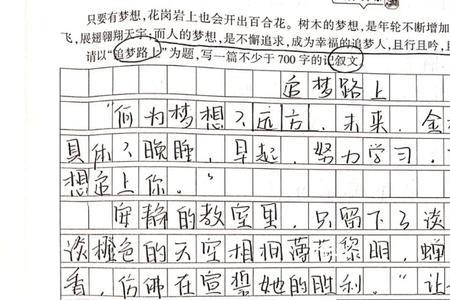 只要有梦想，花岗岩上也会开出百合花。树木的梦想，是年轮不断增加
飞，展翅翱翔天宇；而人的梦想，是不懈追求，成为幸福的追梦人，且行且吟，且
请以“追梦路上”为题，写一篇不少于700字的记叙文
追梦路上
“何为梦想？远方，未来，金
具体？晚睡，早起，努力学习，
想追上你。”
安静的教室里，只留下了淡
淡橙色的天空相间薄荷黎明，蝉
着，仿佛在宣誓她的胜利。“让